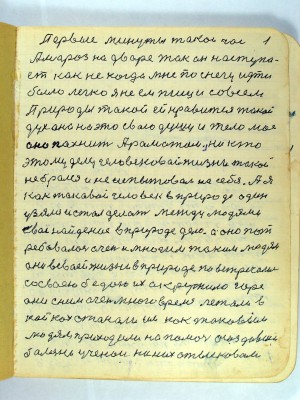 Первые минуты такой час 1
А мароз на дваре так он наступа-
ет как не когда мне по снегу идти
было легко я не ем пищи совсем
Природы такой ей нравится такой
дух она на это сваю душу и тело мое
оно пахнит Араматом, ни кто
этому делу человеков в ай жизни такой
не брался и не испытовал на себя. А я
как такавой человек в природе один
узял и стал делат между людями
сваё найденае в природе дело. а оно пот
ребавалос очен и многим таким людям
они в сваей жизне в природе повстречалис
со сваею бедою их акружило горе
они с ним очен много время
как таковым
людям приходили на помоч создавши
балныя ученои на них отвлековали